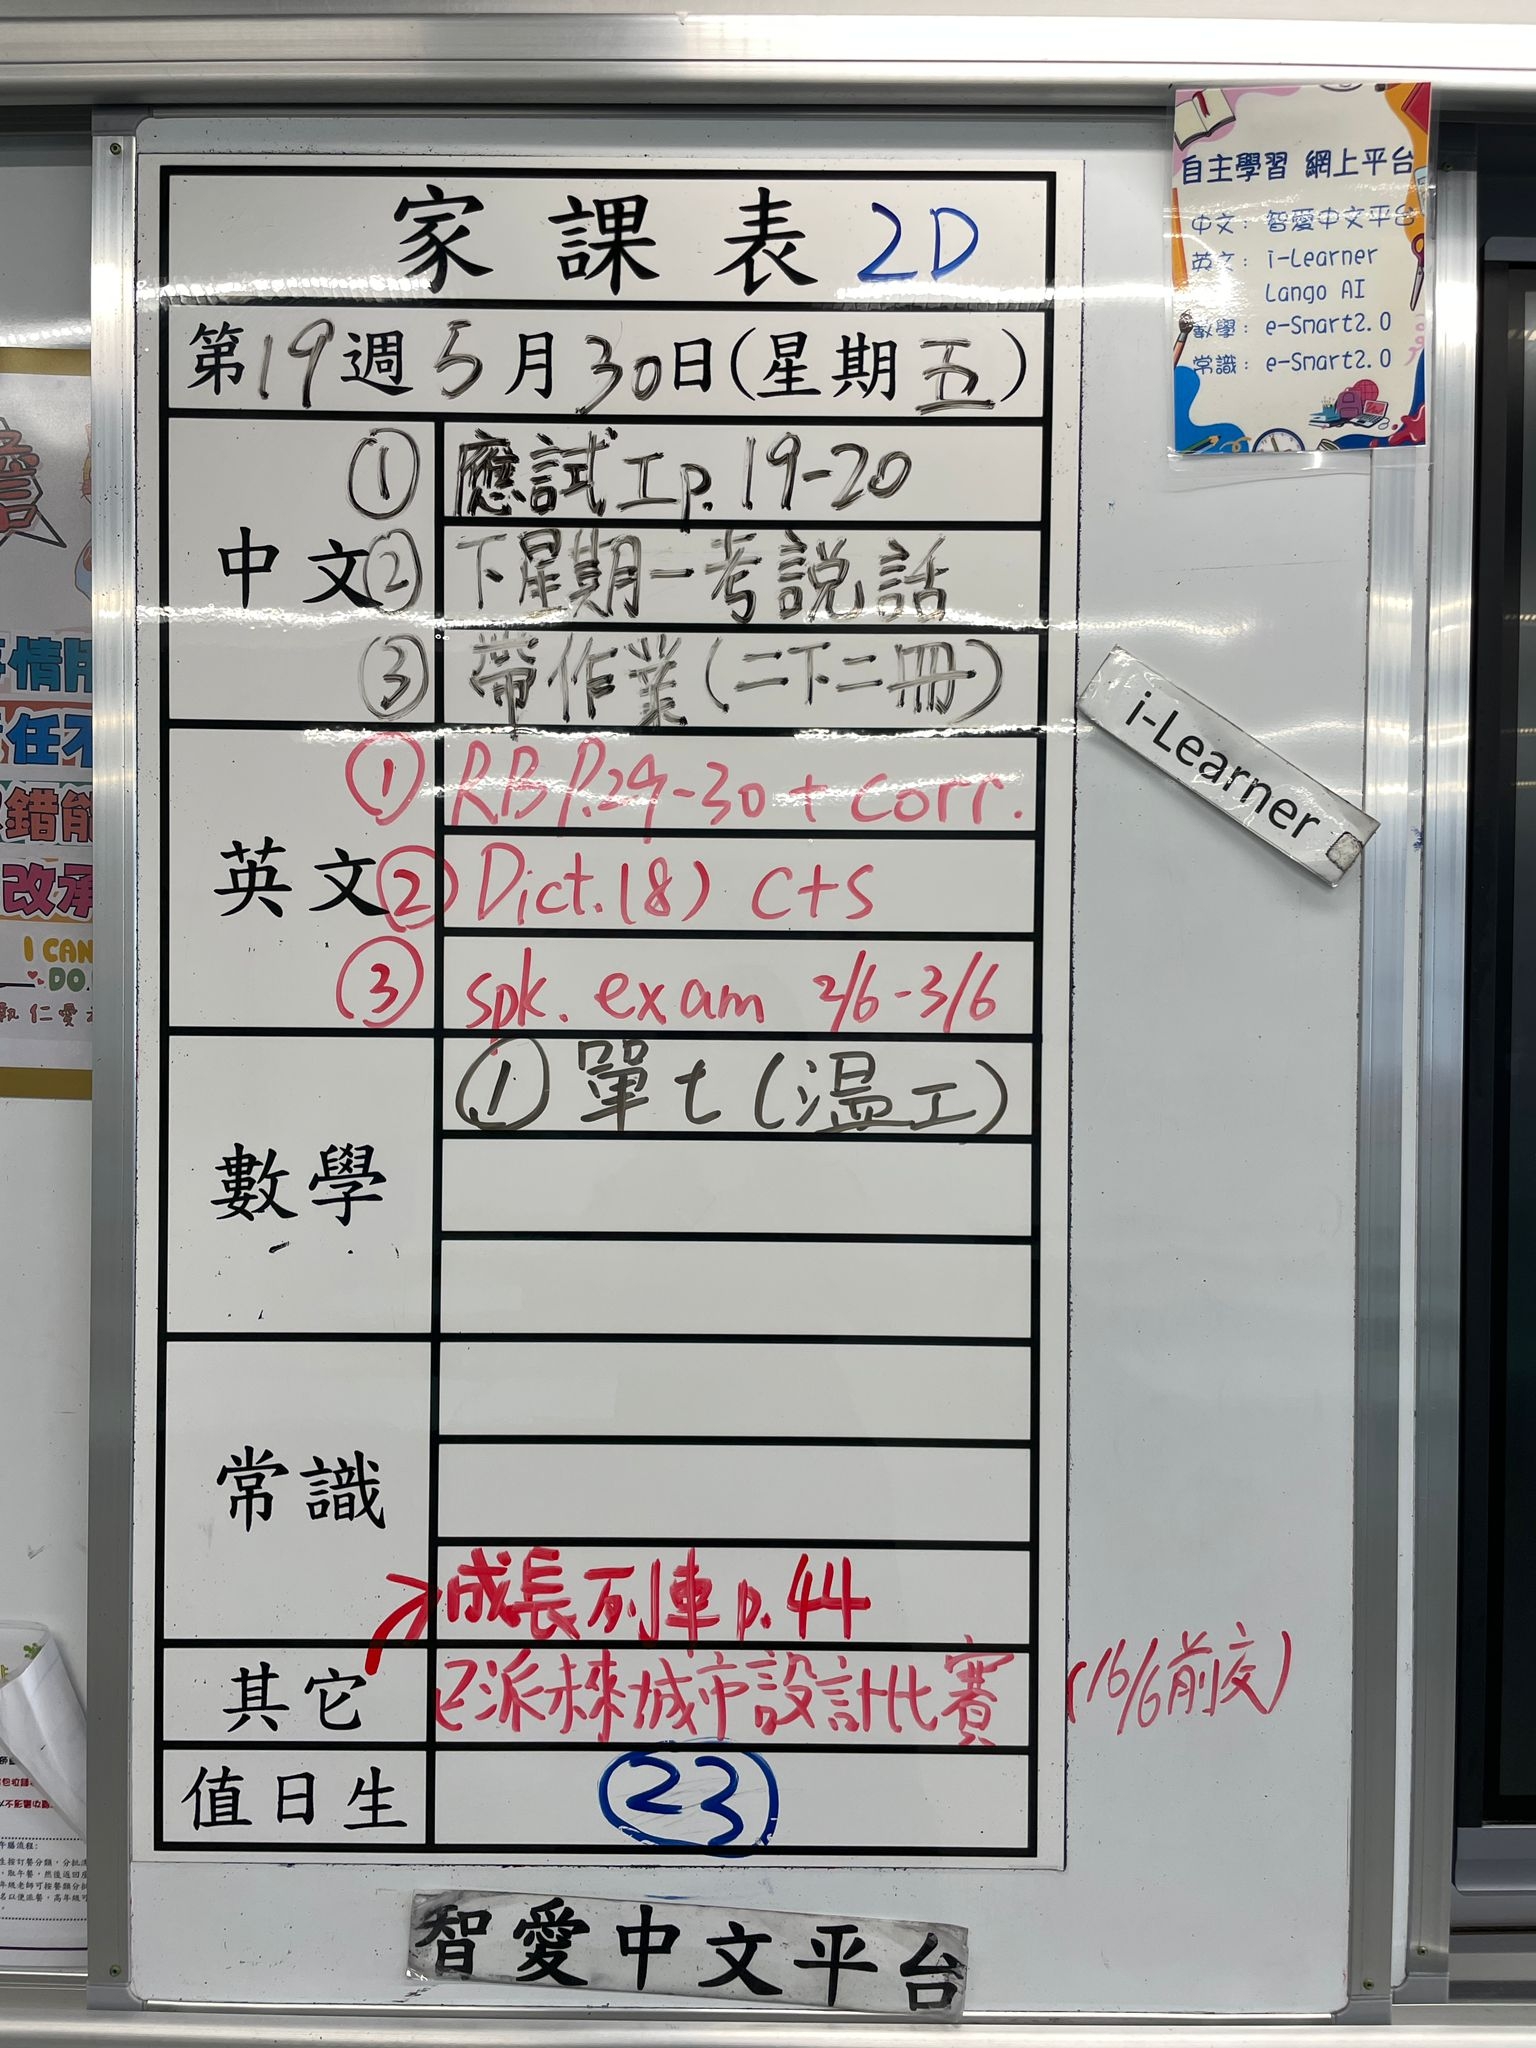 家課表 2D
第19週5月30日(星期五)
中文
① 應試工p.19-20
② 下星期一考説話
③ 帶作業(二下二冊)
英文
① RB P.29-30 + corr.
② Dict.(8) C+S
③ spk. exam 2/6-3/6
數學
① 單七(溫工)
常識
成長列車p.44
其它
已派未來城市設計比賽 (16/6前交)
值日生
23
智愛中文平台
自主學習 網上平台
中文：智愛中文平台
英文：i-Learner
Lango AI
數學：e-Smart2.0
常識：e-Smart2.0
i-Learner
情用
任不
錯能
改承
I CAN
DO
仁愛